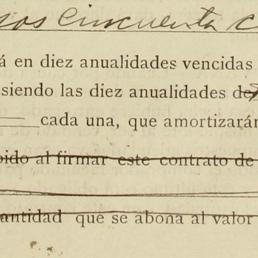 sos cincuenta c
á en diez anualidades vencidas
siendo las diez anualidades de
cada una, que amortizarán
bido al firmar este contrato de
antidad que se abona al valor